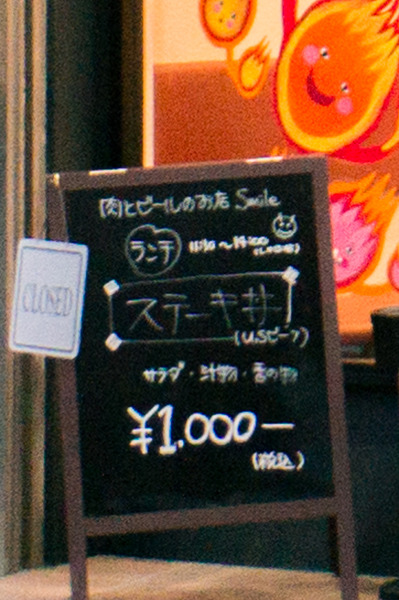 肉とビールのお店 Smile
ランチ
ステーキ丼
(U.Sビーフ)
サラダ・汁物・香の物
¥1.000ー
(税込)
CLOSED